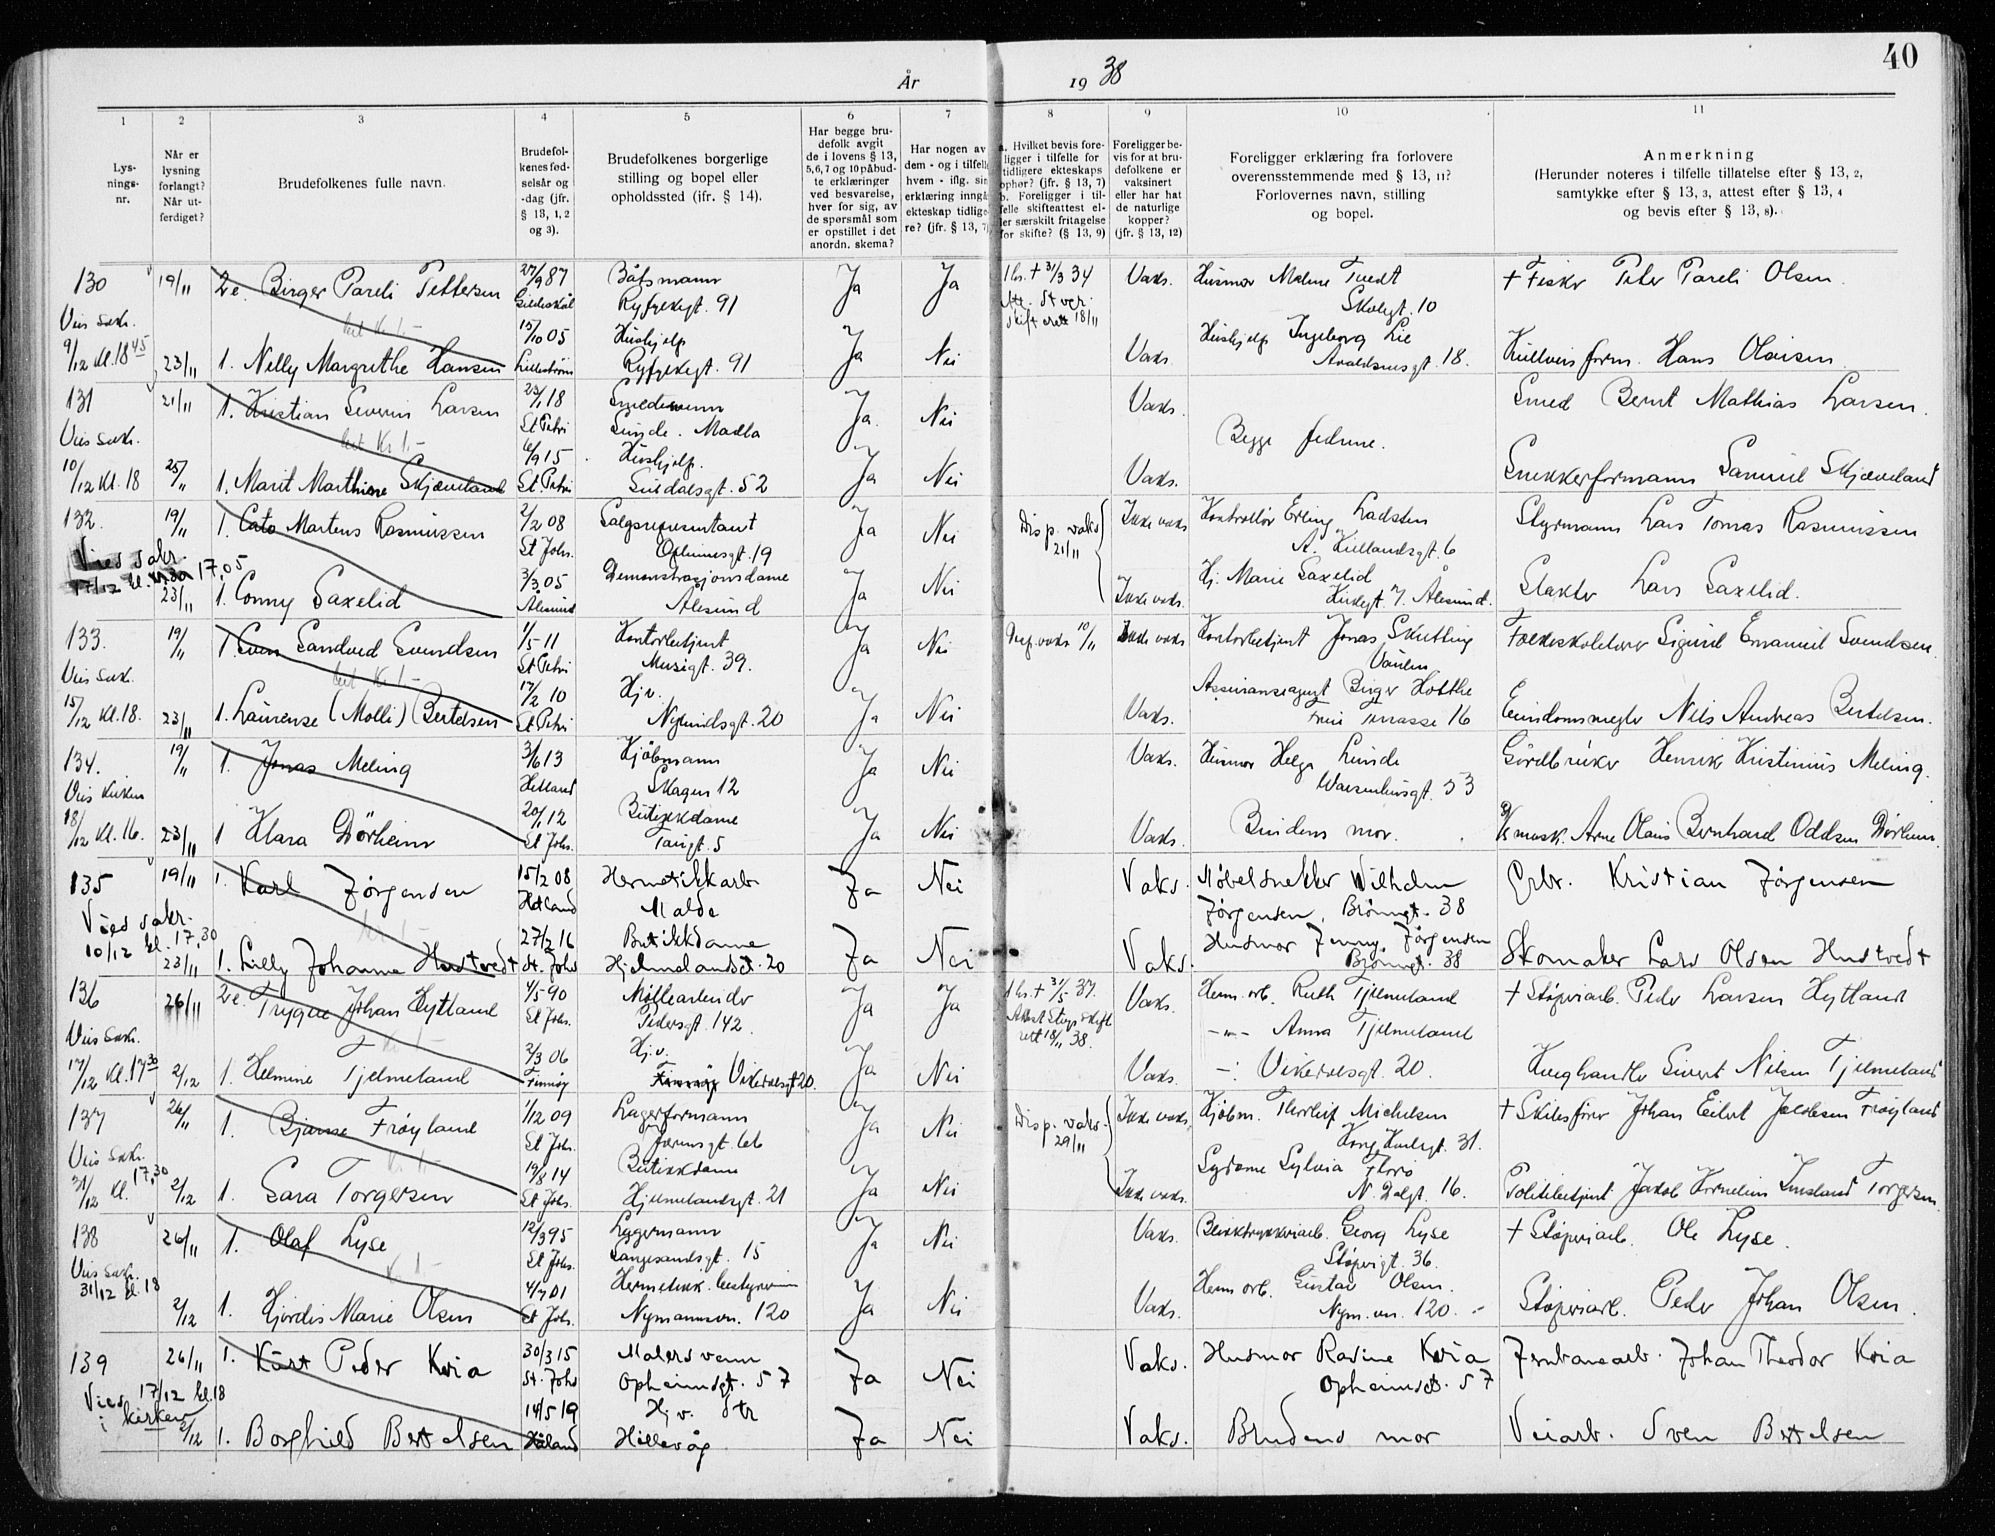 40
År 19 38
1 2 3 4 5 6 7 8 9 10 11
Lysningsnr.
Når er lysning forlangt? Når utferdiget?
Brudefolkenes fulle navn.
Brudefolkenes fødselsår og -dag (jfr. § 13, 1, 2 og 3).
Brudefolkenes borgerlige stilling og bopel eller opholdssted (jfr. § 14).
Har begge brudefolk avgit de i lovens § 13, 5, 6, 7 og 10 påbudte erklæringer ved besvarelse, hver for sig, av de spørsmål som er opstillet i det anordn. skema?
Har nogen av dem - og i tilfelle hvem - iflg. sin erklæring inngå ekteskap tidligere? (jfr. § 13, 7)
a. Hvilket bevis foreligger i tilfelle for tidligere ekteskaps ophør? (jfr. § 13, 7) b. Foreligger i tilfelle skifteattest eller særskilt fritagelse for skifte? (§ 13, 9)
Foreligger bevis for at brudefolkene er vaksinert eller har hat de naturlige kopper? (jfr. § 13, 12)
Foreligger erklæring fra forlovere overensstemmende med § 13, 11? Forlovernes navn, stilling og bopel.
Anmerkning (Herunder noteres i tilfelle tillatelse efter § 13, 2, samtykke efter § 13, 3, attest efter § 13, 4 og bevis efter § 13, 8).
130 19/11 2e. Birger Pareli Pettersen 27/9 87 Båtsmann Ja Ja 1 hs. + 31/3 34 Vaks. Husmor Malene Tvedt + Fisker Peder Pareli Olsen.
Gildeskål Ryfylkegt. 91 Skolegt. 10
Vies sakr. bet. Kr. 1.- skifterett 18/11
9/12 Kl. 18 45 23/11 1. Nelly Margrethe Hansen 15/10 05 Hushjelp Ja Nei Vaks. Hushjelp Ingeborg Lie Hans Olaisen
Lillestrøm Ryfylkegt. 91 Avaldsnesgt. 18.
131 21/11 1. Kristian Severin Larsen 23/1 18 Smedsvenn Ja. Nei Vaks. Smed Bernt Mathias Larsen.
St. Petri Sunde. Madla
Vies sakr. bet Kr 1.- Begge fedrene.
10/12 Kl. 18 25/11 1. Marit Marthine Skjæveland 6/9 15 Hushjelp. Ja Nei Vaks. Snekkerformann Samuel Skjæveland
St. Petri Suldalsgt. 52
132. 19/11 1. Cato Martens Rasmussen 2/2 08 Salgsrepresentant Ja Nei Disp. vaks 21/11 Ikke vaks Kontrollør Erling Ladsten Styrmann Lars Tomas Rasmussen
St Johs. A. Kiellandsgt. 6
Vies sakr.
17/12 kl. 17,05 23/11 1. Conny Saxelid 3/3 05 Demonstrasjonsdame Ja Nei Ikke vaks. Hj. Marie Saxelid Slakter Lars Saxelid.
Ålesund Ålesund Kirkegt. 7. Ålesund.
133. 19/11 1. Sven Sandved Svendsen 1/5 11 Kontorbetjent Ja Nei 10/11 Ikke vaks Kontorbetjent Jonas Skutling Folkeskolelærer Sigurd Emanuel Svendsen.
St Petri Musegt. 39. Vaulen
Vies sakr. bet Kr. 1.-
15/12 Kl. 18. 23/11 1. Laurense (Molli) Bertelsen 17/2 10 Hj.v. Ja Nei Vaks. Assuranseagent Birger Hotthe Eiendomsmegler Nils Andreas Bertelsen.
St Petri Nylundsgt. 20 Terrasse 16
134. 19/11 1. Jonas Meling 3/6 13 Kjøbmann Ja Nei Vaks. Husmor Helga Lunde Gårdbruker Henrik Kristinius Meling.
Hetland Skagen 12 Waisenhusgt. 53
Vies kirken
18/12 Kl. 16. 23/11 1 Klara Dørheim 20/1 12 Butikkdame Ja Nei Vaks. Brudens mor. Arne Olais Bernhard Oddsen Dørheim
St Johs. Taugt. 5
135 19/11 1. Karl Jørgensen 15/2 08 Hermetikkarb Ja Nei Vaks. Møbelsnekker Wilhelm Grbr. Kristian Jørgensen
Hetland Malde Jørgensen, Brönngt. 38
Vies sakr. Kr. 1.-
10/12 kl. 17,30 23/11 1. Lilly Johanne Hustvedt 27/2 16 Butikkdame Ja Nei Vaks. Husmor Jenny Jörgensen Skomaker Lars Olsen Hustvedt
St. Johs Hjelmelandsgt. 20 Brönngt. 38
136 26/11 2e. Trygve Johan Hytland 4/5 90 Møllearbeider Ja Ja 1 hs. + 31/5 37. Vaks. Herm. arb. Ruth Tjelmeland + Støperiarb. Peder Larsen Hytland
St Johs. Pedersgt. 142. rett 18/11 38. -"- Anna Tjelmeland
Vies sakr. Kr 1.-
17/12 Kl. 17 30 2/12 1. Helmine Tjelmeland 2/3 06 Hj.v. Ja Nei Vaks. Vikedalsgt. 20. Sivert Nilsen Tjelmeland
Finnøy Finnøy Vikedalsgt 20.
137 26/11 1. Bjarne Frøyland 1/12 09 Lagerformann Ja Nei Disp. vaks. 29/11 Ikke vaks. Kjøbm. Thorleif Michelsen + Skibsfører Johan Eilert Jacobsen Frøyland
St Johs. Jærensgt. 66 Kong Haralsgt. 31.
Vies sakr. Kr 1.-
31/12 Kl. 17,30 2/12 1. Sara Torgersen 19/8 14 Butikkdame Ja Nei Ikke vaks. Sydame Sylvia Florø Politibetjent Jakob Kornelius Imsland Torgersen
St Johs. Hjelmelandsgt. 21 N. Dalgt. 16.
138 26/11 1. Olaf Lyse 12/3 95 Lagermann Ja Nei Vaks. Blikktrykkeriarb. Georg Lyse + Støperiarb. Ole Lyse.
St Johs. Langesandsgt. 15 Støperigt. 36.
Vies sakr. Kr 1.-
31/12 kl. 18 2/12 1. Hjørdis Marie Olsen 4/7 01 Hermetikk. bestyrerinne Ja Nei Vaks. Herm arb. Gustav Olsen. Støperiarb. Peder Johan Olsen.
St Johs. Nymannsvn. 120 Nym. vn. 120.
139 26/11 1. Kåre Peder Kvia 30/3 15 Malersvenn Ja Nei Vaks. Husmor Rasine Kvia Jernbanearb. Johan Theodor Kvia
St. Johs Opheimsgt. 57 Opheimsgt. 57
Vies 17/12 kl. 18
i kirken 2/12 1. Borghild Bertelsen 14/5 19 Hj.v. Str Ja Nei Vaks. Brudens mor Veiarb. Sven Bertelsen
Håland Hillevåg